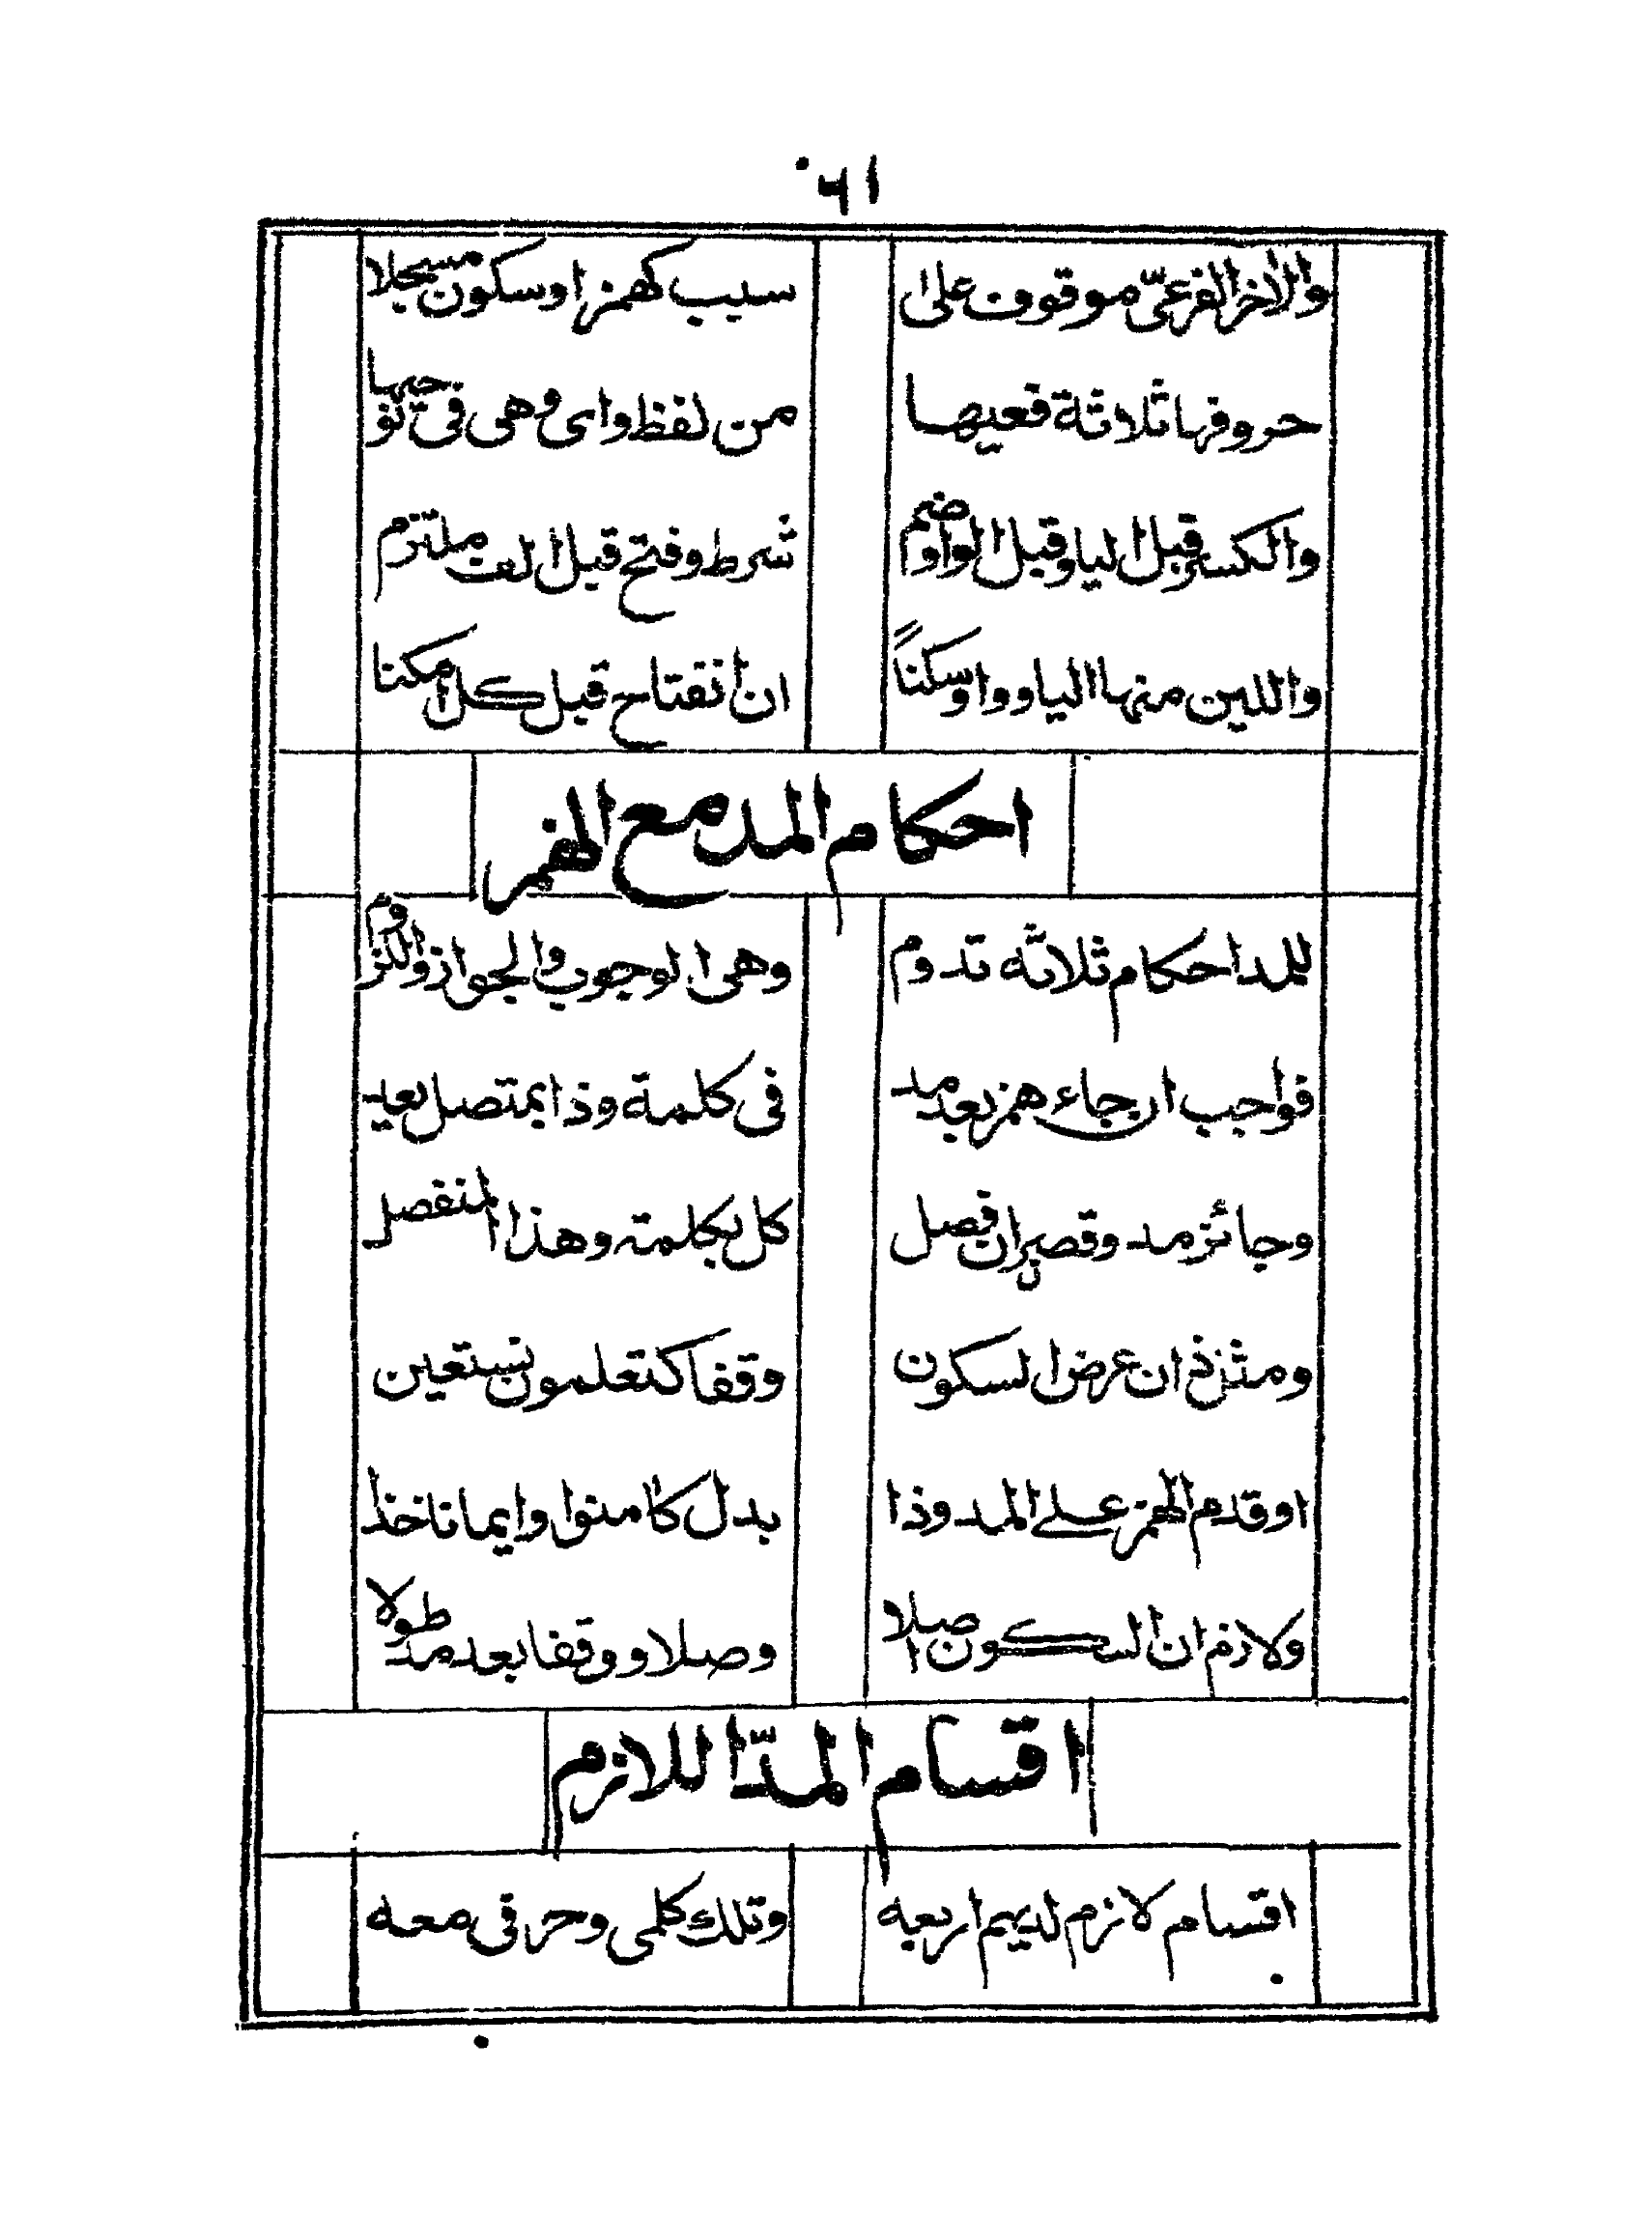 ١٦٠
والاخر الفرعيّ موقوف على سبب كهمز او سكون مسجلا
حروفها ثلاثة فعيها من لفظ واى وهى فى نوحيها
والكسر قبل اليا وقبل الواو ضم شرط وفتح قبل الف ملتزم
واللين منها اليا وواو سكناً ان انفتاح قبل كل امكنا
احكام المد مع الهمز
للمد احكام ثلاثة تدوم وهى الوجوب والجواز واللزوم
فواجب ان جاء همز بعد مد فى كلمة وذا بمتصل يعد
وجائز مد وقصر ان فصل كل بكلمة وهذا المنفصل
ومثل ذ ان عرض السكون وقفا كتعلمون نستعين
او قدم الهمز على المد وذا بدل كامنوا وايمانا خذا
ولازم ان السكون اصلا وصلا ووقفا بعد مد طولا
اقسام المدّ اللازم
اقسام لازم لديهم اربعه وتلك كلمى وحرفى معه